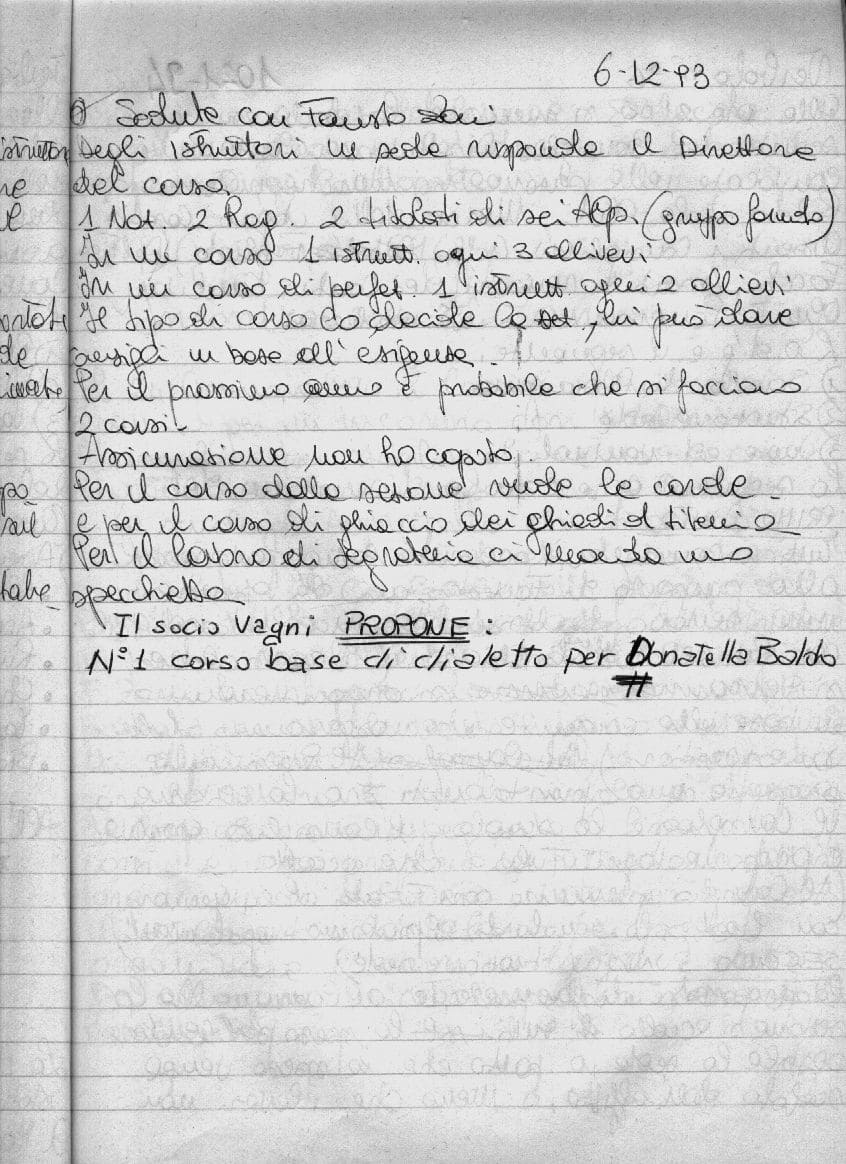 6-12-93
Sedute con Fausto Zoni
Degli istruttori in sede risponde il Direttore
del corso.
1 Naz. 2 Reg. 2 titolati di sci Alp. (gruppo fondo)
In un corso 1 istrutt. ogni 3 allievi
In un corso di perfez. 1 istrutt. ogni 2 allievi
Il tipo di corso lo decide la , lui può dare
consigli in base all'esigenze.
Per il prossimo anno è probabile che si facciano
2 corsi.
Assicurazione non ho capito.
Per il corso dalla sezione vuole le corde
e per il corso di ghiaccio dei chiodi al titanio
Per il lavoro di segreteria ci manda uno
specchietto
Il socio Vagni PROPONE:
N°1 corso base di dialetto per Donatella Baldo